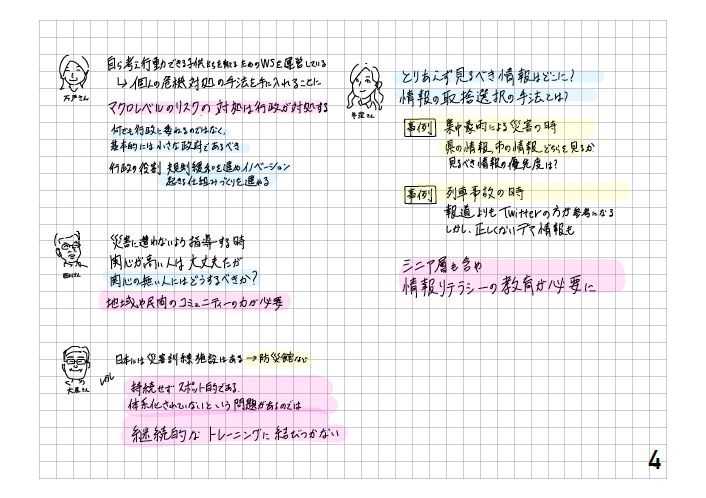 自ら考え行動できる子供たちを教えるためのWSを運営している
→個人の危機対処の手法を手に入れることに
マクロレベルのリスクの対処は行政が対処する
何でも行政に委ねるのではなく、
基本的には小さな政府であるべき
行政の役割 規制緩和を進めイノベーション
起きる仕組みづくりを進める
災害に遭わないよう指導する時
関心が高い人は大丈夫だが
関心の無い人にはどうするべきか?
地域や民間のコミュニティーの力が必要
大屋さん
日本には災害訓練施設はある→防災館など
しかし
持続せずスポット的である。
体系化されていないという問題があるのでは
継続的なトレーニングに結びつかない
とりあえず見るべき情報はどこに?
情報の取捨選択の手法とは?
事例 集中豪雨による災害の時
県の情報、市の情報どちらを見るか
見るべき情報の優先度は?
事例 列車事故の時
報道よりもTwitterの方が参考になる
しかし、正しくないデマ情報も
シニア層も含め
情報リテラシーの教育が必要に
4